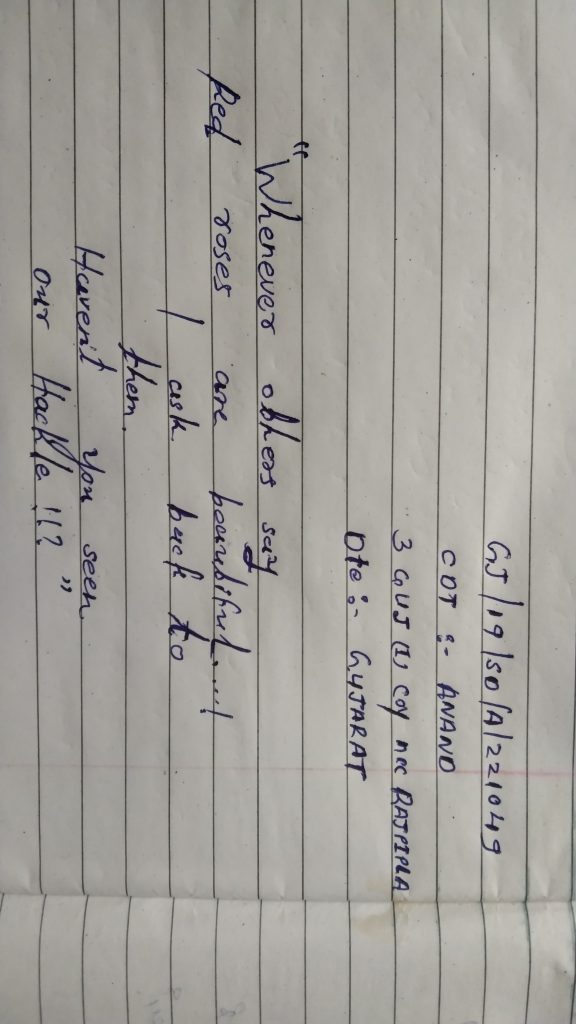 GJ/19/SD/A/221049
CDT :- ANAND
3 GUJ (I) COY NCC RAJPIPLA
Dte :- GUJARAT
"Whenever others say
Red roses are beautiful....!
I ask back to
them.
Haven't you seen
our Hackle !!?"